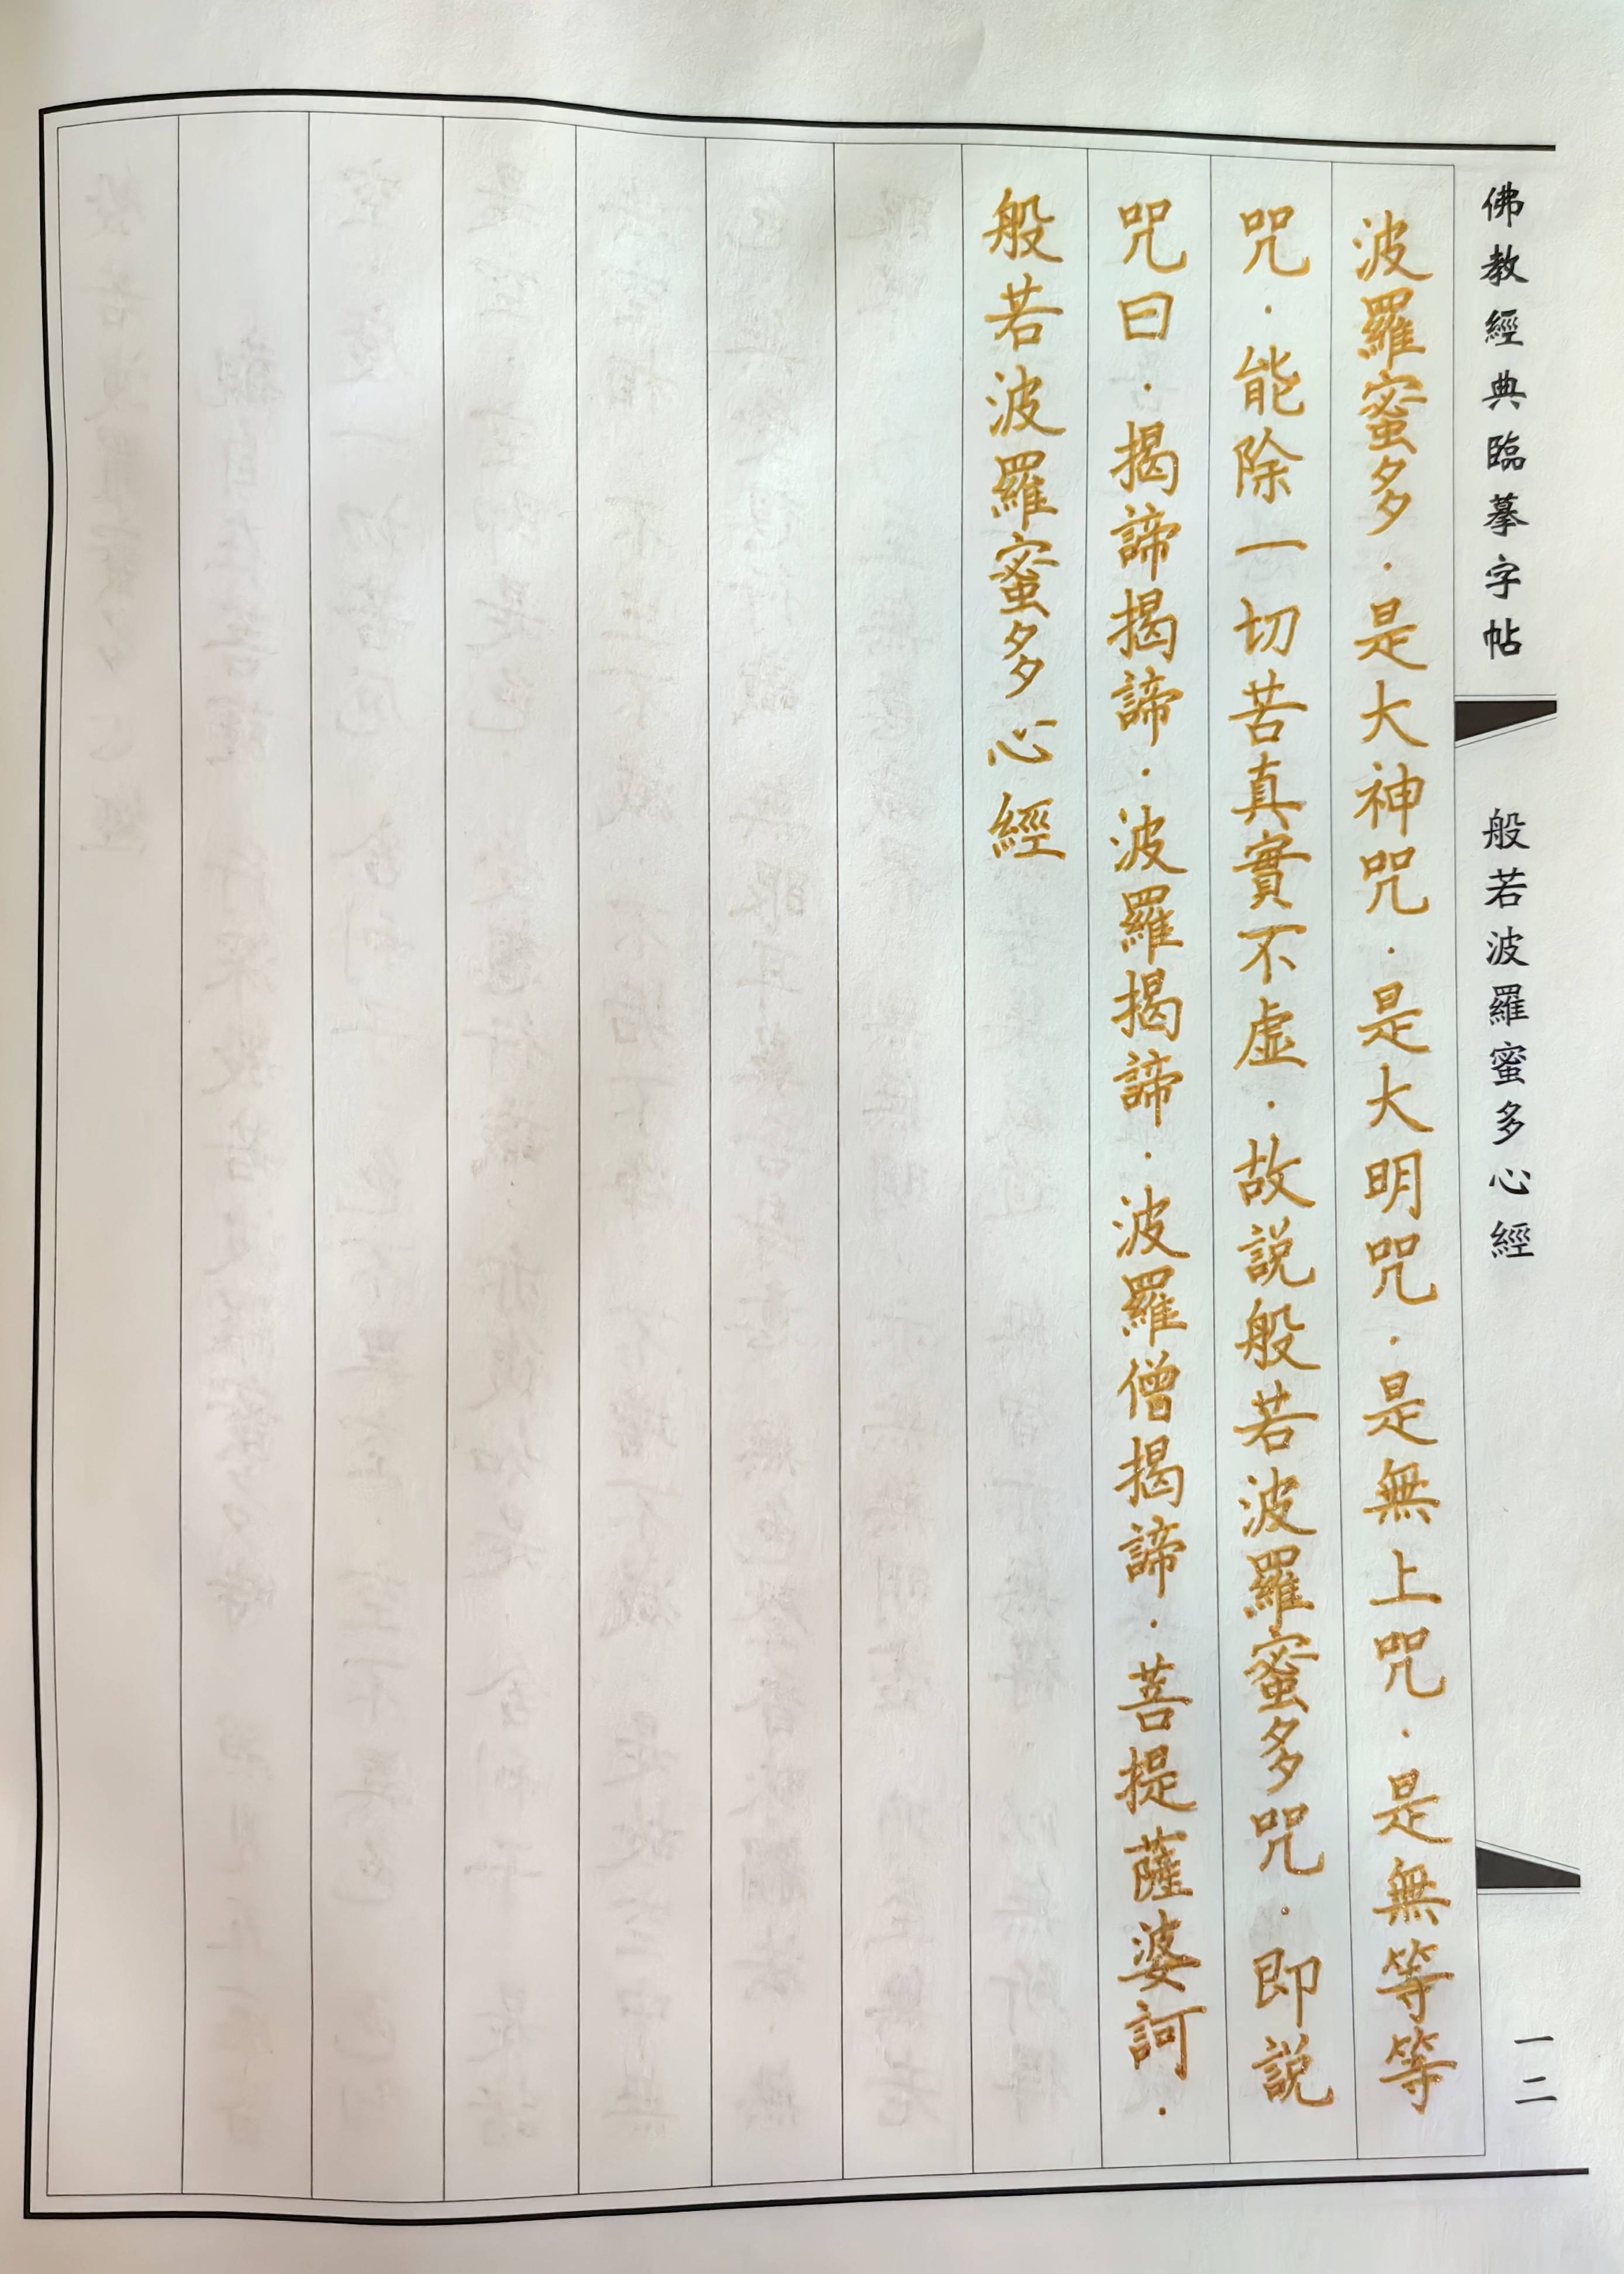 佛教經典臨摹字帖
般若波羅蜜多心經
一二
波羅蜜多·是大神咒·是大明咒·是無上咒·是無等等
咒·能除一切苦真實不虛·故説般若波羅蜜多咒·即説
咒曰·揭諦揭諦·波羅揭諦·波羅僧揭諦·菩提薩婆訶·
般若波羅蜜多心經